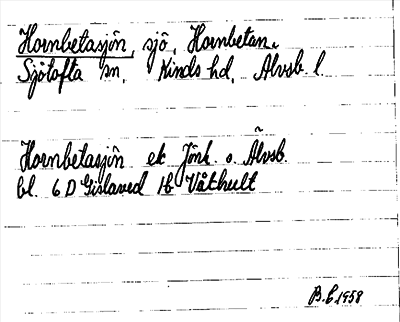 Hornbetasjön, sjö, Hornbetan.
Sjötofta sn, Kinds hd, Älvsb. l.
Hornbetasjön ek Jönk. o. Älvsb.
bl. 6 D Gislaved 1b Våthult
B.C 1958